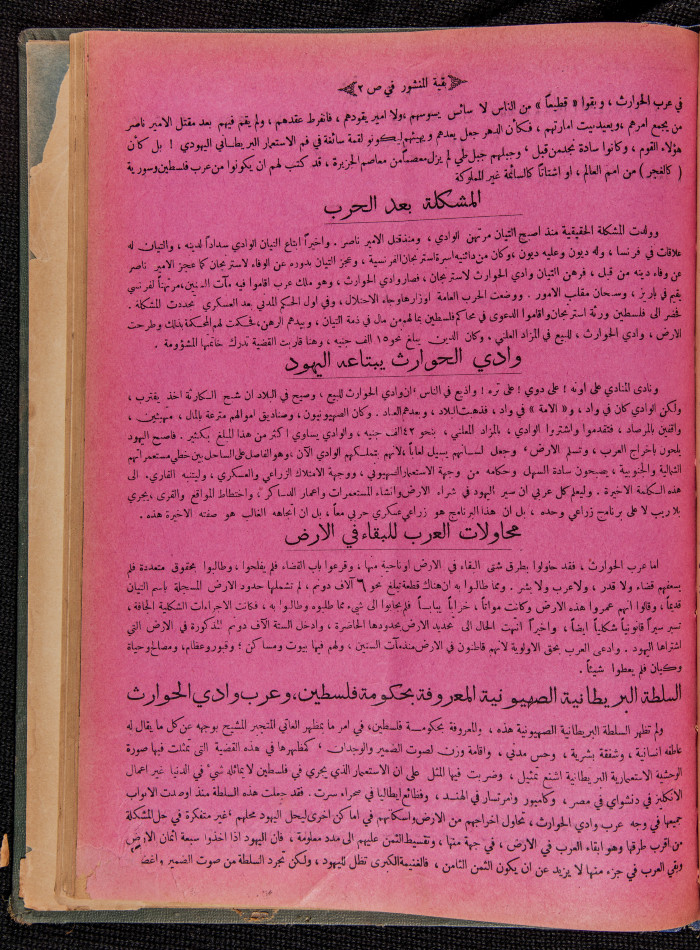 بقية المنشور في ص ٣
في عرب الحوارث ، وبقوا « قطيعاً » من الناس لا سائس يسوسهم ،ولا امير يقودهم ، فانفرط عقدهم ، ولم يقم فيهم بعد مقتل الامير ناصر
من يجمع امرهم ،ويعيدبيت امارتهم ، فكأن الدهر جعل يعدهم ويهيئهم ليكونو لقمة سائغة في فم الاستعمار البريطاني اليهودي ! بل كأن
هؤلاء القوم ، وكانوا سادة نجدمن قبل ، وجبلهم جبل طي لم يزل معصماً من معاصم الجزيرة ، قد كتب لهم ان يكونوا من عرب فلسطين وسورية
( كالفجر ) من امم العالم ، او اشتاتاً كالسائمة غير المملوكة
المشكلة بعد الحرب
وولدت المشكلة الحقيقية منذ اصبح التيان مرتهن الوادي ، ومنذقتل الامير ناصر . واخيراً ابتاع التيان الوادي سداداً لدينه ، والتيان له
علاقات في فرنسا ، وله ديون وعليه ديون ،وكان من دائنيه اسرة استرمجان الفرنسية ، وعجز التيان بدوره عن الوفاء لاسترمجان كما عجز الامير ناصر
عن وفاء دينه من قبل ، فرهن التيان وادي الحوارث لاسترمجان ، فصار وادي الحوارث ، وهو ملك عرب اقاموا فيه مآت السنين،مرتهناً لفرنسي
يقيم في باريز ، وسبحان مقلب الامور . ووضعت الحرب العامة اوزارها وجاء الاحتلال ، وفي اول الحكم المدني بعد العسكري تجددت المشكلة .
فحضر الى فلسطين ورثة استرمجان واقاموا الدعوى في محاكم فلسطين بمالهم من مال في ذمة التيان ، وبيدهم الرهن، فحكمت لهم المحكمة بذلك وطرحت
الارض ، وادي الحوارث ، للبيع في المزاد العلني . وكان الدين يبلغ نحو ١٥ الف جنيه ، وهنا قاربت القضية تدرك خاتمتها المشؤومة .
وادي الحوارث يبتاعه اليهود
ونادى المنادي على اونه ! على دوي ! على تره ! واذيع في الناس ،ان وادي الحوارث للبيع ، وصيح في البلاد ان شبح الكارثة اخذ يقترب ،
ولكن الوادي كان في واد ، و« الامة » في واد ، فذهبت البلاد ، وبعدهم العباد . وكان الصهيونيون ، وصناديق اموالهم مترعة بالمال ، متهيئين ،
واقفين بالمرصاد ، فتقدموا واشتروا الوادي ، بالمزاد العلني ، بنحو ٤٢ الف جنيه ، والوادي يساوي اكثر من هذا المبلغ بكثير . فاصبح اليهود
يلحون باخراج العرب ، وتسلم الارض ، وجعل لسانهم يسيل لعاباً ،لانهم بتملكهم الوادي الآن ،وهو الفاصل على الساحل بين خطي مستعمراتهم
الشمالية والجنوبية ، يصبحون سادة السهل وحكامه من وجهة الاستعمار الصهيوني ، ووجهة الامتلاك الزراعي والعسكري ، وليتنبه القاريء الى
هذه الكلمة الاخيرة . وليعلم كل عربي ان سير اليهود في شراء الارض وانشاء المستعمرات واعمار الدساكر ، واختطاط المواقع والقرى ،يجري
بلا ريب لا على برنامج زراعي وحده ، بل ان هذا البرنامج هو زراعي عسكري حربي معاً ، بل ان اتجاهه الغالب هو صفته الاخيرة هذه .
محاولات العرب للبقاء في الارض
اما عرب الحوارث ، فقد حاولوا بطرق شتى البقاء في الارض او ناحية منها ، وقرعوا باب القضاء ، فلم يفلحوا ، وطالبوا بحقوق متعددة فلم
يسعفهم قضاء ولا قدر ، ولا عرب ولا بشر . ومما طالبوا به ان هناك قطعة تبلغ نحو ٦ آلاف دونم ، لم تشملها حدود الارض المسجلة باسم التيان
قديماً ، وقالوا انهم عمروا هذه الارض وكانت مواتاً ، خراباً يباباً فلم يجابوا الى شيء مما طلبوه وطالوا به ، فكانت الاجراءات الشكلية الجافة ،
تسير سيراً قانونياً شكلياً ايضاً ، واخيراً انتهت الحال الى تحديد الارض بحدودها الحاضرة ، وادخل الستة الآف دونم المذكورة في الارض التي
اشتراها اليهود . وادعى العرب بحق الاولوية لانهم قاطنون في الارض منذ مآت السنين ، ولهم فيها بيوت ومساكن ؛ وقبور وعظام، ومصالح وحياة
وكيان فلم يعطوا شيئاً .
السلطة البريطانية الصهيونية المعروفة بحكومة فلسطين، وعرب وادي الحوارث
ولم تظهر السلطة البريطانية الصهيونية هذه ، والمعروفة بحكومة فلسطين، في امر ما بمظهر العاتي المتجبر المشيح بوجهه عن كل ما يقال له
عاطفة انسانية ، وشفقة بشرية ، وحس مدني ، واقامة وزن لصوت الضمير والوجدان ، كمظهرها في هذه القضية التي تمثلت فيها صورة
الوحشية الاستعمارية البريطانية اشنع تمثيل ، وضربت فيها المثل على ان الاستعمار الذي يجري في فلسطين لا يماثله شيء في الدنيا غير اعمال
الانكليز في دنشواي في مصر ، وكامبور وامرتسار في الهند ، وفظائع ايطاليا في صحراء سرت . فقد جعلت هذه السلطة منذ اوصدت الابواب
جميعها في وجه عرب وادي الحوارث ، تحاول اخراجهم من الارض واسكانهم في اماكن اخرى ليحل اليهود محلهم ،غير متفكرة في حل المشكلة
من اقرب طرقها وهو ابقاء العرب في الارض ، في جهة منها ، وتقسيط الثمن عليهم الى مدد معلومة ، فان اليهود اذا اخذوا سبعة اثمان الارض
وبقي العرب في جزء منها لا يزيد عن ان يكون الثمن الثامن ، فالغنيمة الكبرى تظل لليهود ، ولكن تجرد السلطة من صوت الضمير